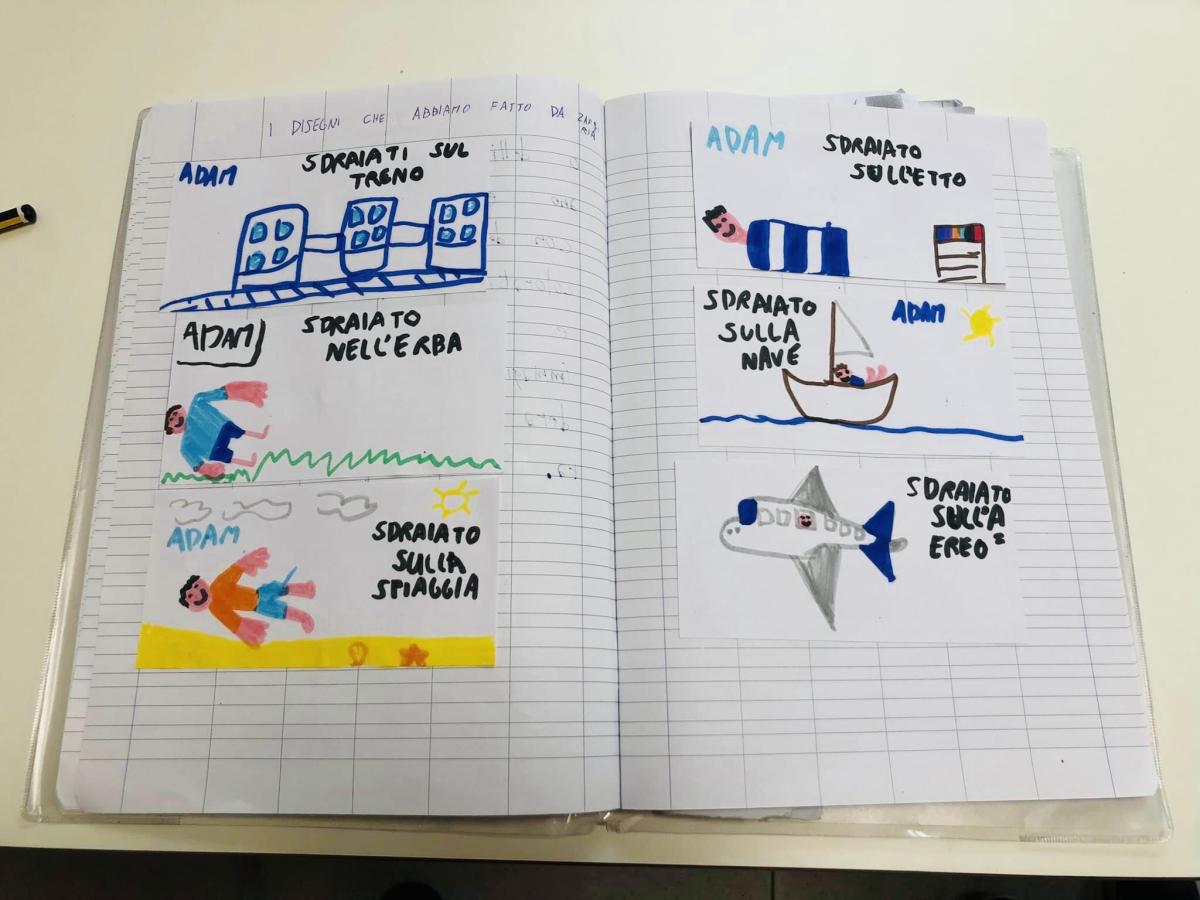 I DISEGNI CHE ABBIAMO FATTO DA
ADAM
SDRAIATI SUL
TRENO
ADAM
SDRAIATO
NELL'ERBA
ADAM
SDRAIATO
SULLA
SPIAGGIA
ADAM
SDRAIATO
SULL'ETTO
SDRAIATO
SULLA
NAVE
ADAM
SDRAIATO
SULL'A
EREO